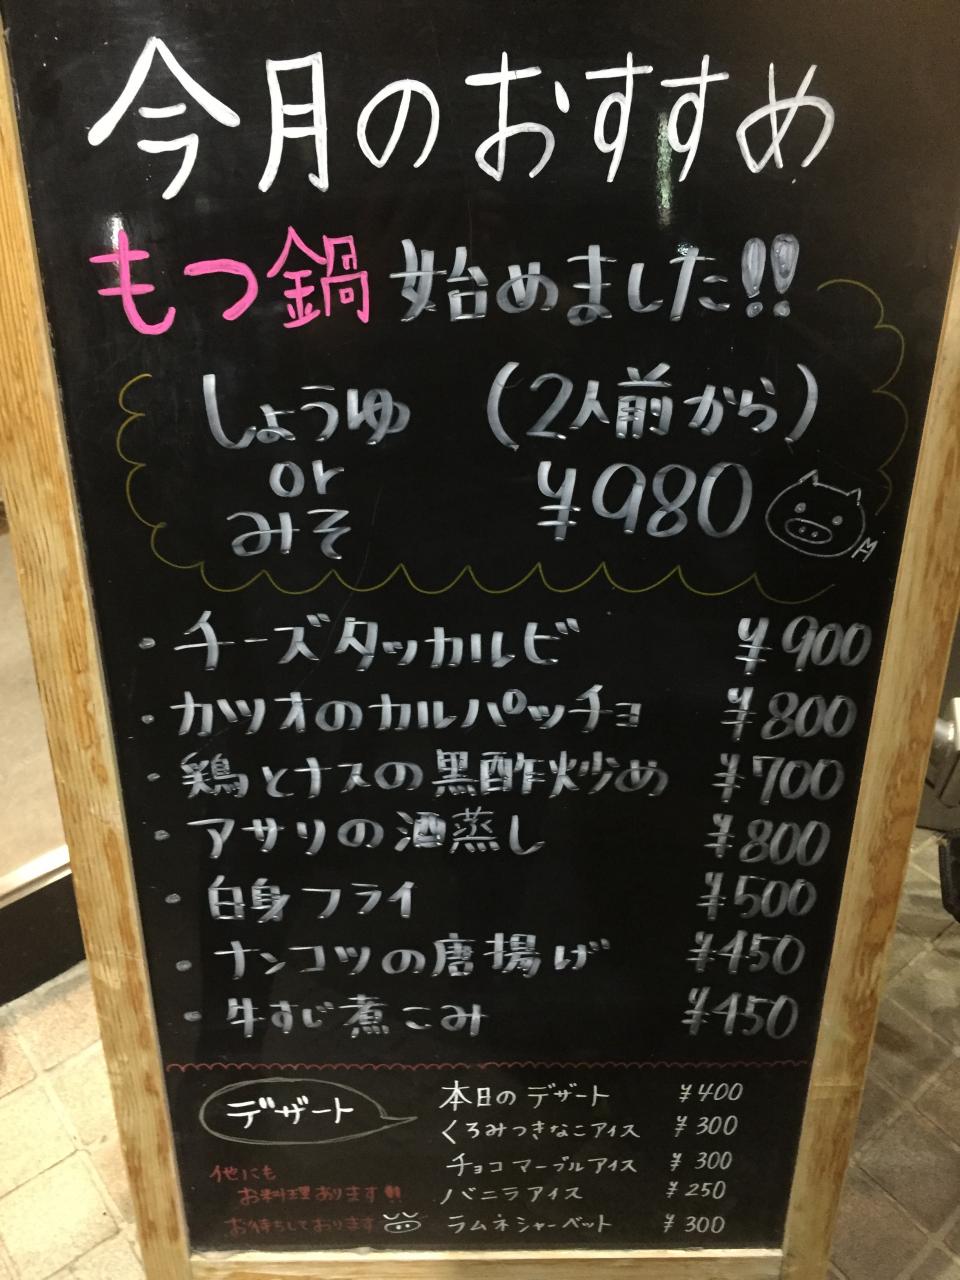 今月のおすすめ
もつ鍋 始めました!!
しょうゆ (2人前から)
or
みそ ¥980
・チーズタッカルビ ¥900
・カツオのカルパッチョ ¥800
・鶏とナスの黒酢炒め ¥700
・アサリの酒蒸し ¥800
・白身フライ ¥500
・ナンコツの唐揚げ ¥450
・牛すじ煮こみ ¥450
デザート
本日のデザート ¥400
くろみつきなこアイス ¥300
チョコマーブルアイス ¥300
バニラアイス ¥250
ラムネシャーベット ¥300
他にも
お料理あります!!
お待ちしております